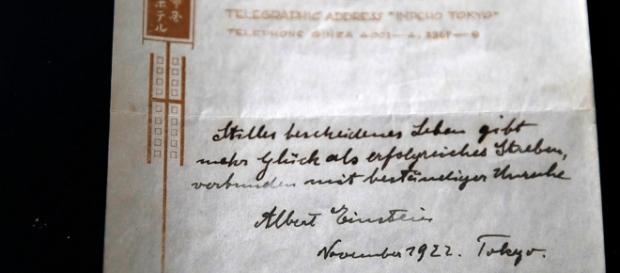 ホテル
TELEGRAPHIC ADDRESS "IMPEHO TOKYO"
TELEPHONE GINZA
Stilles bescheidenes Leben gibt
mehr Glück als erfolgreiches Streben,
verbunden mit beständiger Unruhe
Albert Einstein
November 1922. Tokyo.